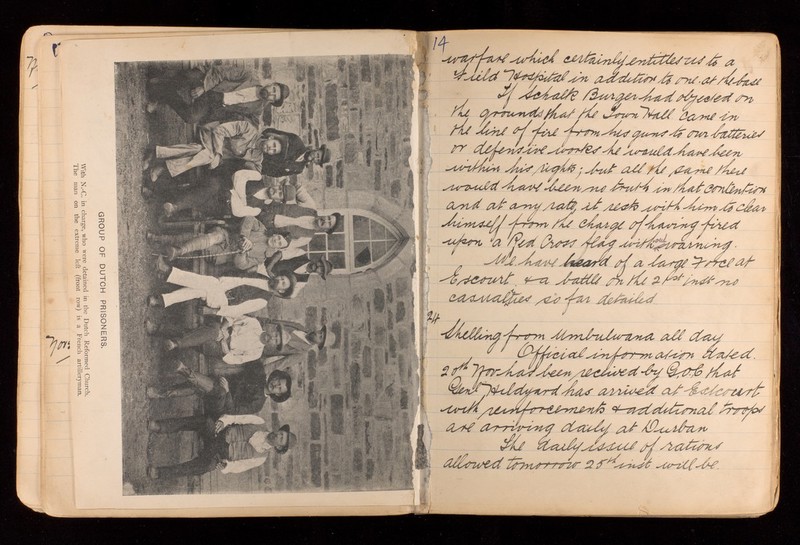 GROUP OF DUTCH PRISONERS.
With N.-C. in charge, who were detained in the Dutch Reformed Church.
The man on the extreme left (front row) is a French artilleryman.
Nov:
14
warfare which certainly entitles us to a
Feild Hospital in addition to one at the base
If Schalk Burger had objected on
the grounds that the Town Hall came in
the line of fire from his guns to our batteries
or defensive works he would have been
within his rights; but all the same there
would have been no truth in that contention
and at any rate it rests with him to clear
himself from the charge of having fired
upon a Red Cross flag without warning.
We have heard of a large Force at
Escourt & a battle on the 21st inst no
casualties so far detailed
24
Shelling from Umbulwana all day
Official information dated
20th Nov has been recived by G.O.C that
Genl Hildyard has arrived at Estcourt
with reinforcements & additional troops
are arriving daily at Durban
The daily issue of rations
allowed tomorrow 25th inst will be